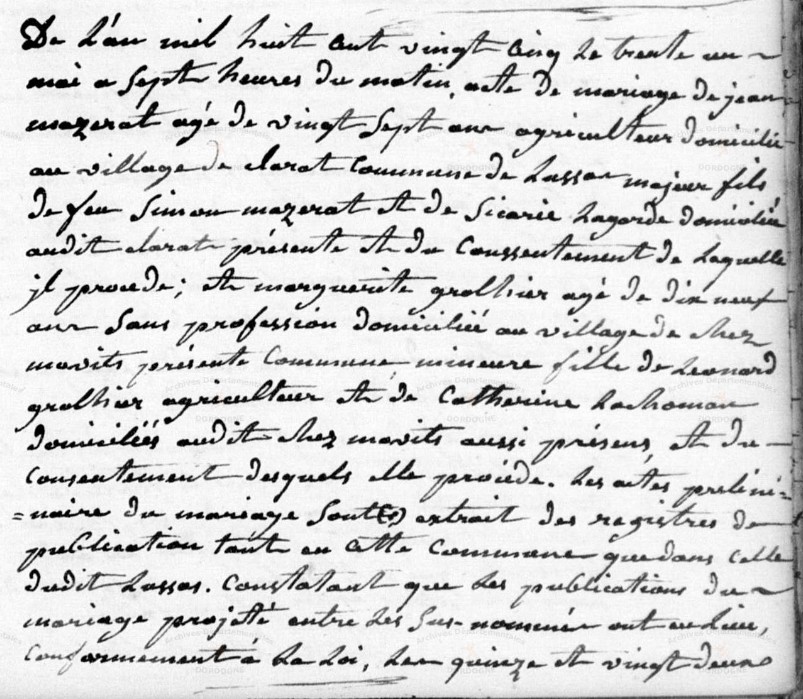 De l'an mil huit cent vingt cinq le trente un
mai a sept heures du matin, acte de mariage de jean
mazerat agé de vingt sept ans agriculteur domicilié
au village de clarat commune de Lussas majeur fils
de feu Simon mazerat et de Sicarie Lagarde domiciliée
audit clarat présente et du Conssentement de Laquelle
jl procede ; et marguerite grolhier agé de dix neuf
ans Sans profession domiciliée au village de chez
movits présente Commune, mineure fille de Leonard
grolhier agriculteur et de Catherine
domiciliés audit chez movits aussi présens, et du
Consentement desquels elle procéde. Les actes prelimi-
=naire du mariage Sont (s) extrait des registres de
publication tant en cette Commune que dans celle
dudit Lussas. Constatant que les publications du
mariage projeté entre les sus-nommés ont eu lieu,
Conformement à la loi, les quinze et vingt deux